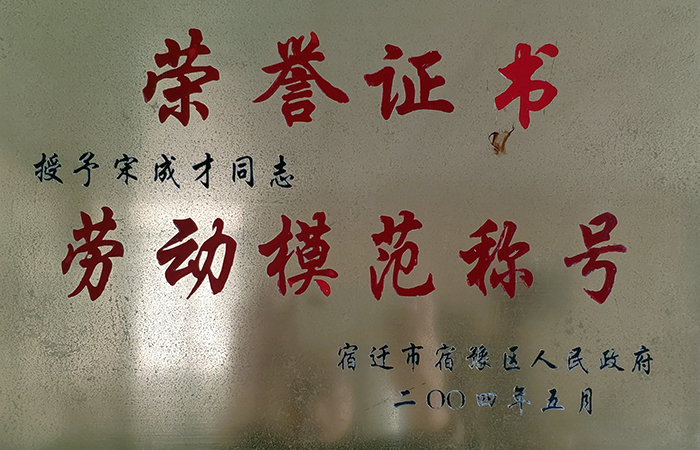 荣誉证书
授予宋成才同志
劳动模范称号
宿迁市宿豫区人民政府
二〇〇四年五月